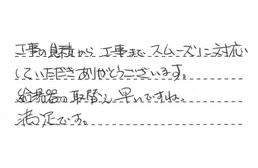 工事の見積から工事まで スムーズに対応
していただきありがとうございます。
給湯器の取替え 早いですね。
満足です。